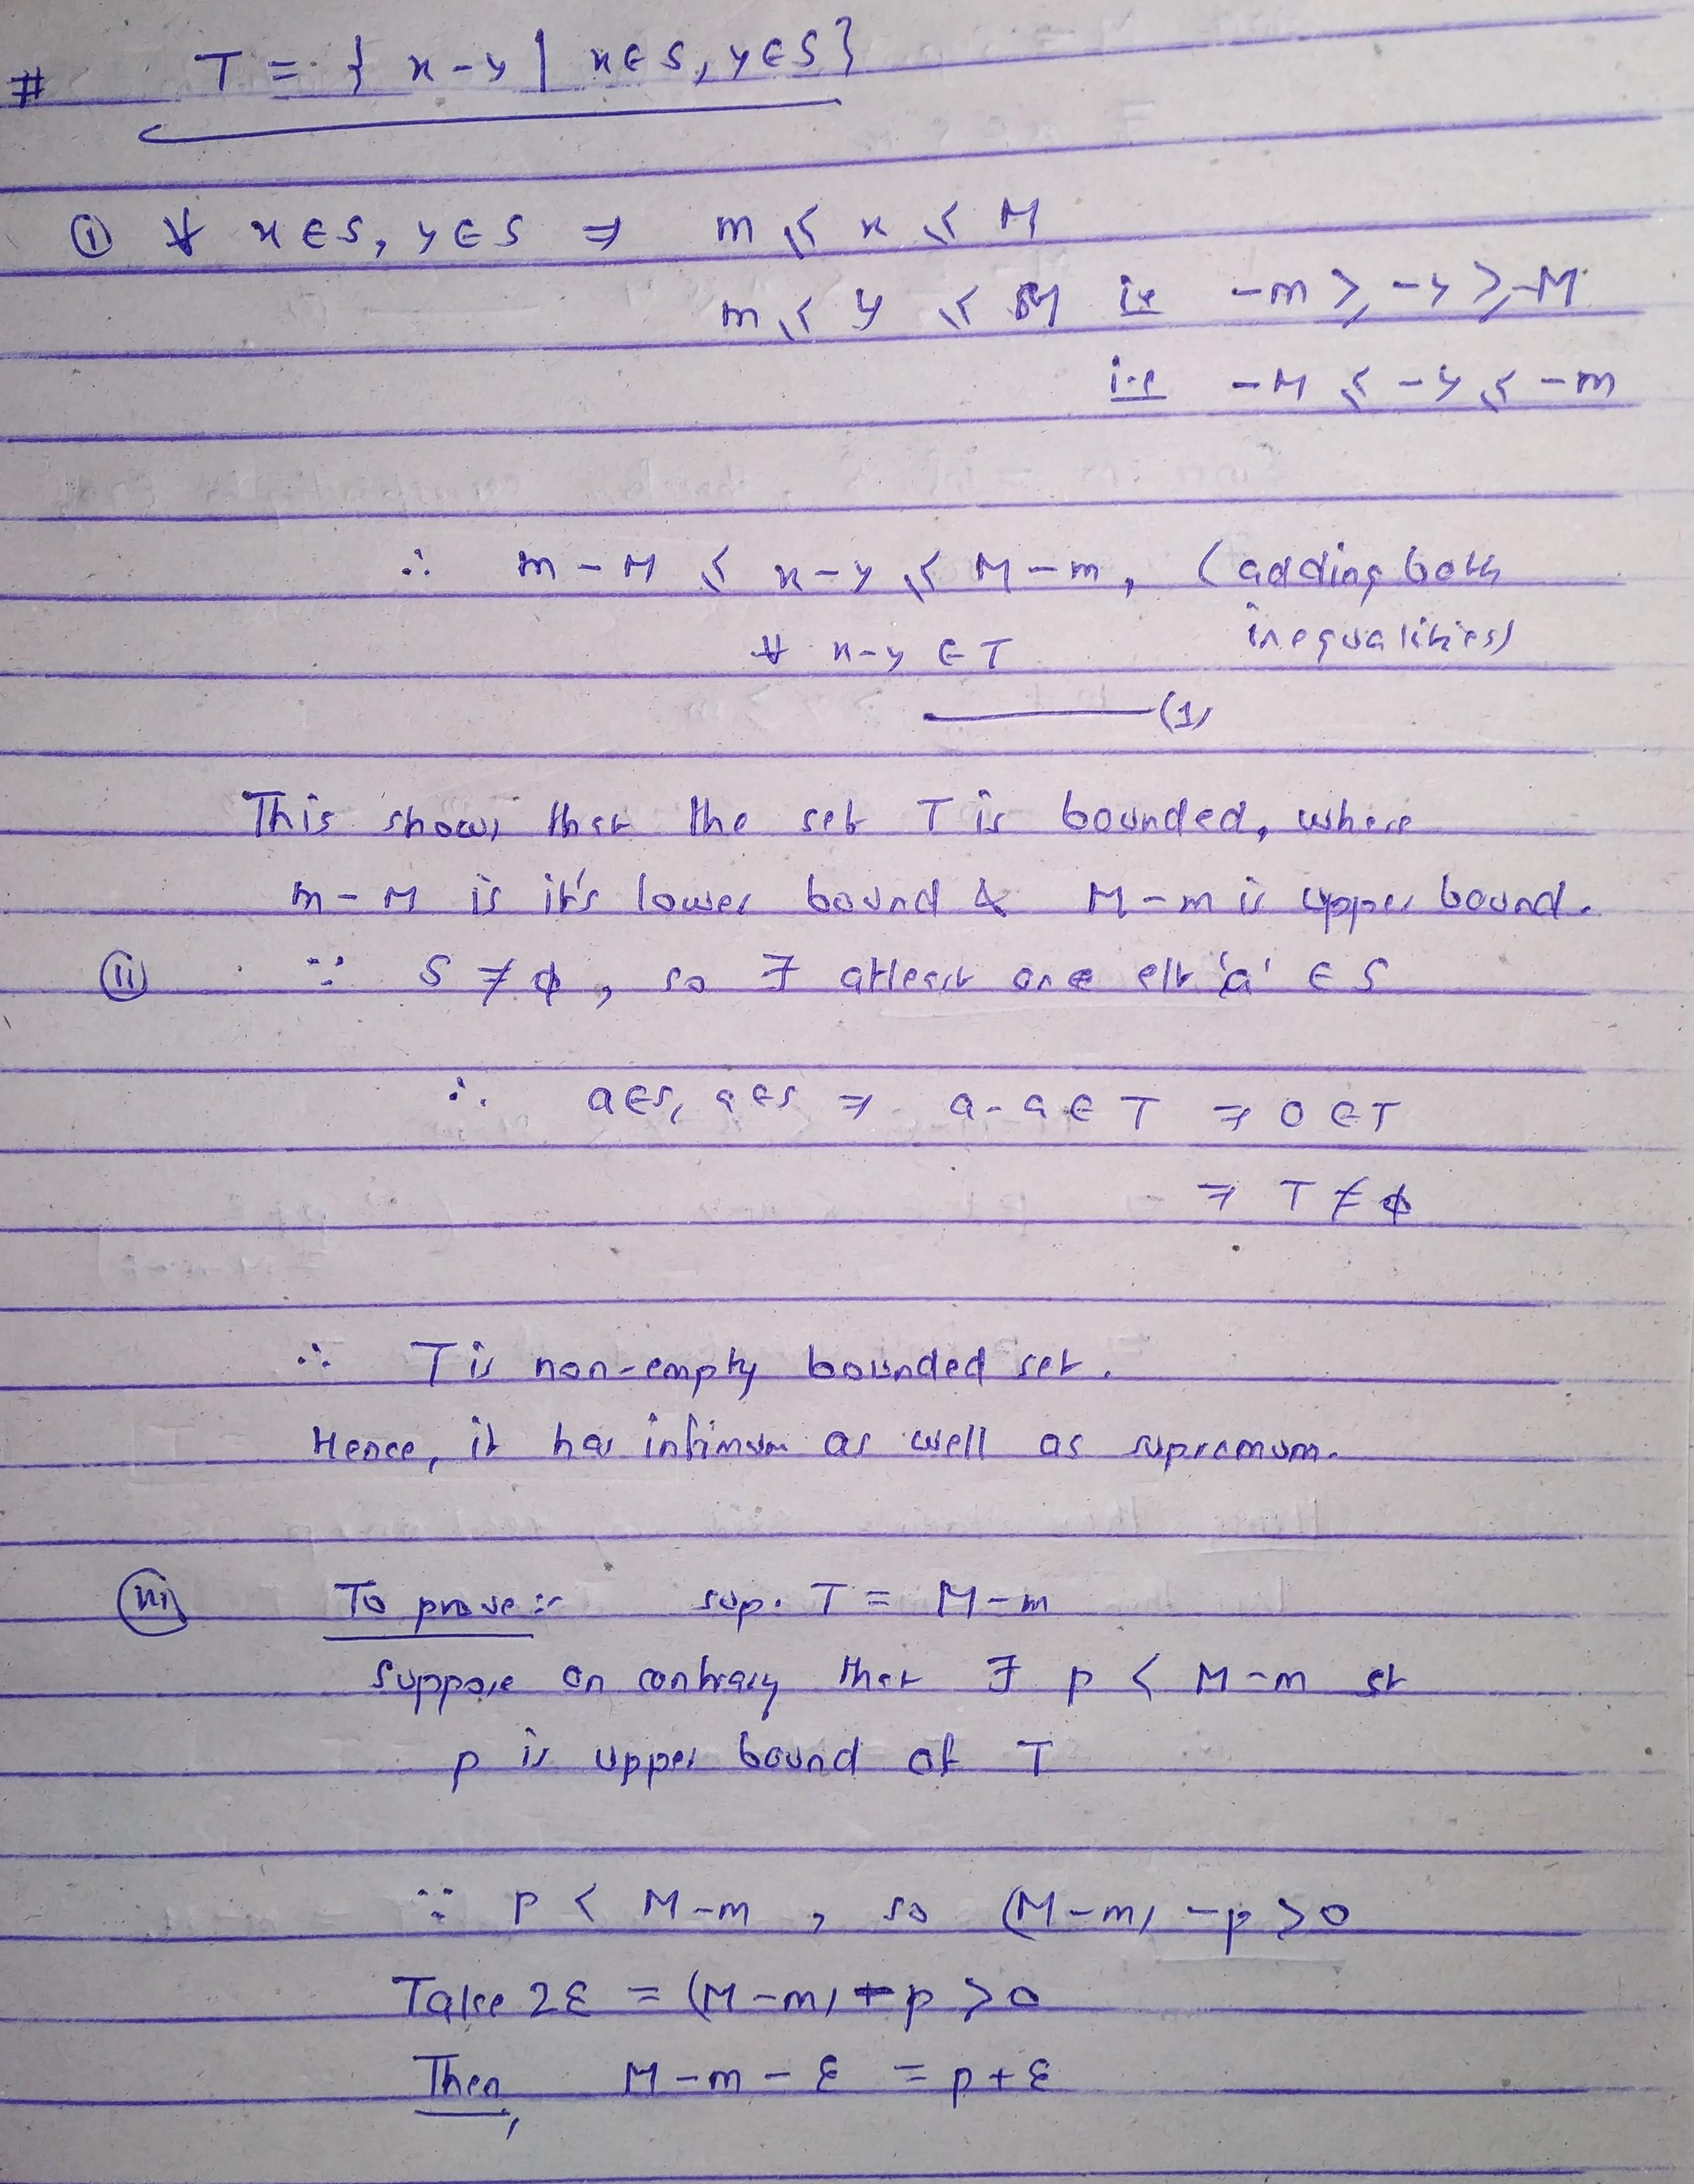 # T = { x-y | x∈S, y∈S}
① ∀ x∈S, y∈S ⇒ m ≤ x ≤ M
m ≤ y ≤ M i.e -m ≥ -y ≥ -M
i.e -M ≤ -y ≤ -m
∴ m-M ≤ x-y ≤ M-m, (adding both
∀ x-y ∈ T inequalities)
—(1)
This shows that the set T is bounded, where
m-M is it's lower bound & M-m is upper bound.
(ii) ∵ S ≠ ϕ, so ∃ atleast one elt 'a' ∈ S
∴ a∈S, a∈S ⇒ a-a∈T ⇒ 0∈T
⇒ T ≠ ϕ
∴ T is non-empty bounded set.
Hence, it has infimum as well as supremum.
(iii) To prove:- sup. T = M-m
Suppose on contrary that ∃ p < M-m st
p is upper bound of T
∵ p < M-m, so (M-m) -p > 0
Take 2ε = (M-m) - p > 0
Then, M-m-ε = p+ε